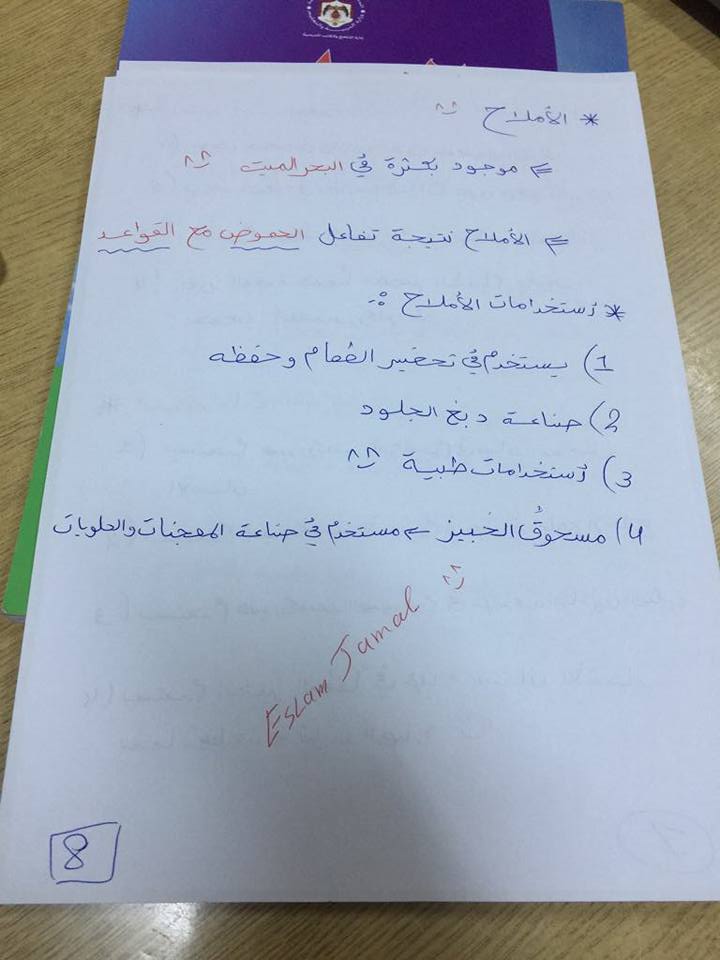 * الأملاح
⇐ موجود بكثرة في البحر الميت ^^
⇐ الأملاح نتيجة تفاعل الحموض مع القواعد
* إستخدامات الأملاح :-
1) يستخدم في تحضير الطعام وحفظه
2) صناعة دبغ الجلود
3) إستخدامات طبية ^^
4) مسحوق الخبيز ⇐ مستخدم في صناعة المعجنات والحلويات
Eslam Jamal
8